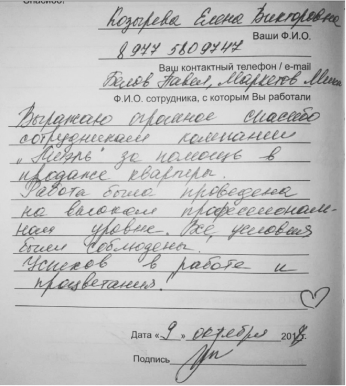 Козырева Елена Викторовна
Ваши Ф.И.О.
8 977 5809747
Ваш контактный телефон / e-mail
Белов Павел, Маркетов
Ф.И.О. сотрудника, с которым Вы работали
Выражаю огромное спасибо
сотрудникам компании
за помощь в
продаже квартиры.
Работа была проведена
на высоком профессиональ-
ном уровне. Все условия
были соблюдены.
Успехов в работе и
процветания!
Дата « 9 » октября 2018
Подпись